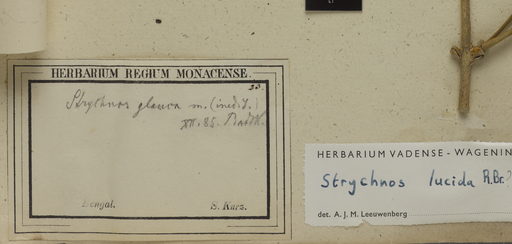 HERBARIUM REGIUM MONACENSE.
33.
Strychnos glauca m. (inedit.)
XII. 85.
Bengal. S. Kurz.
HERBARIUM VADENSE - WAGENIN
Strychnos lucida R.Br.?
det. A. J. M. Leeuwenberg